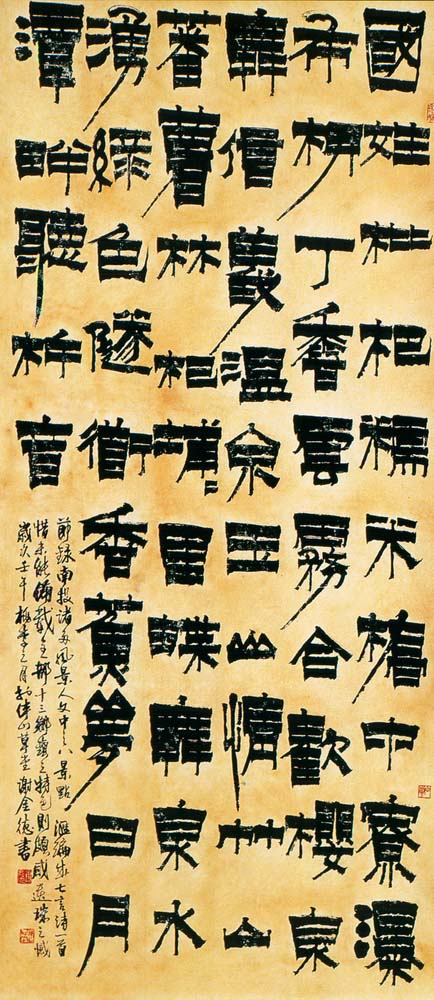 國姓枇杷糯米橋中寮瀑
布柳丁香雲霧合歡櫻泉
舞信義溫泉玉山情竹山
蕃薯林杞埔々里蝶泉水
湧綠色隧道香蕉夢日月
潭畔聽杵音
節錄南投諸多風景人文中之八景點滙編成七言詩一首
惜未能備載全部十三鄉鎮之特色則頗感遺珠之憾
歲次壬午梅季之月於山草堂謝金德書